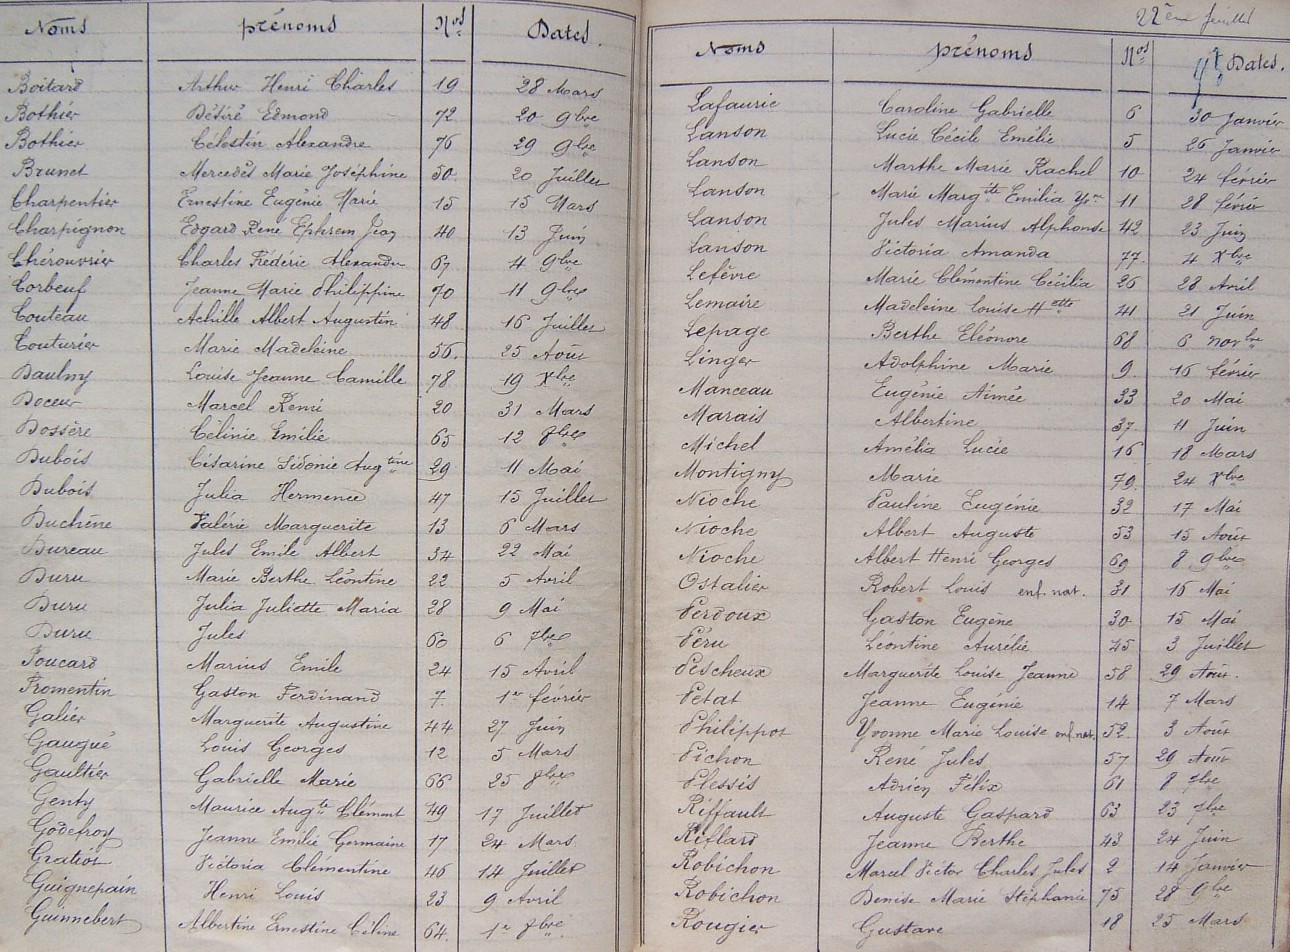 Noms prénoms Nos Dates.
Boitard Arthur Henri Charles 19 28 Mars
Bothier Désiré Edmond 72 20 9bre
Bothier Célestin Alexandre 76 29 9bre
Brunet Mercedès Marie Joséphine 50. 20 Juillet
Charpentier Ernestine Eugénie Marie 15 15 Mars
Charpignon Edgard René Ephrem Jean 40 13 Juin
Chérouvrier Charles Frédéric Alexandre 67. 4 9bre
Corbeuf Jeanne Marie Philippine 70 11 9bre
Couteau Achille Albert Augustin 48 16 Juillet
Couturier Marie Madeleine 56. 25 Août
Daulny Louise Jeanne Camille 78 19 Xbre
Marcel Remi 20 31 Mars
Dossère Célinie Emilie 65 12 8bre
Dubois Césarine Sidonie Augtine 29 11 Mai
Dubois Julia Hermence 47 15 Juillet
Duchêne Valérie Marguerite 13 6 Mars
Dureau Jules Emile Albert 34 22 Mai
Duru Marie Berthe Léontine 22 5 Avril
Duru Julia Juliette Maria 28 9 Mai
Duru Jules 60 6 7bre
Foucard Marius Emile 24 15 Avril
Fromentin Gaston Ferdinand 7. 1er février
Galier Marguerite Augustine 44 27 Juin
Gaugué Louis Georges 12 5 Mars
Gaultier Gabrielle Marie 66 25 8bre
Genty Maurice Augte Clément 49 17 Juillet
Godefroy Jeanne Emilie Germaine 17 24 Mars.
Gratiot Victoria Clémentine 46 14 Juillet
Guignepain Henri Louis 23 9 Avril
Guinnebert Albertine Ernestine Céline 64. 1er 8bre.
22ème feuillet
Noms prénoms Nos Dates.
Lafaurie Caroline Gabrielle 6 30 Janvier
Lanson Lucie Cécile Emélie 5 26 Janvier
Lanson Marthe Marie Rachel 10 24 février
Lanson Marie Margte Emilia 11 28 février
Lanson Jules Marius Alphonse 42 23 Juin
Lanson Victoria Amanda 77. 4 Xbre
Lefèvre Marie Clémentine Cécilia 26 28 Avril
Lemaire Madeleine Louise Hette 41 21 Juin
Lepage Berthe Eléonore 68 6 novbre
Linger Adolphine Marie 9. 16 février
Manceau Eugénie Aimée 33 20 Mai
Marais Albertine 37. 11 Juin
Michel Amélia Lucie 16 18 Mars
Montigny Marie 79. 24 Xbre
Nioche Pauline Eugénie 32 17 Mai
Nioche Albert Auguste 53 15 Août
Nioche Albert Henri Georges 69 8 9bre
Ostalier Robert Louis enf. nat. 31 16 Mai
Perdoux Gaston Eugène 30. 15 Mai
Péru Léontine Aurélie 45 3 Juillet
Pescheux Marguerite Louise Jeanne 58 29 Août.
Petat Jeanne Eugénie 14 7 Mars
Philippot Yvonne Marie Louise enf. nat. 52 3 Août
Pichon René Jules 57 29 Août
Plessis Adrien Félix 61 8 7bre
Riffault Auguste Gaspard 63 23 7bre
Riflard Jeanne Berthe 43 24 Juin
Robichon Marcel Victor Charles Jules 2 14 Janvier
Robichon Denise Marie Stéphanie 75 28 9bre
Rougier Gustave 18 25 Mars